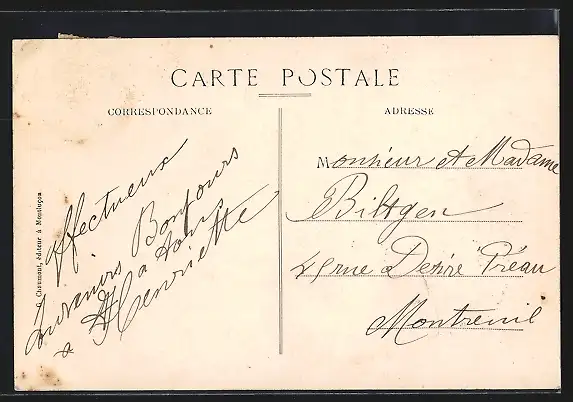 CARTE POSTALE
CORRESPONDANCE
ADRESSE
Chaumont, éditeur à Montluçon
affectueux
Souvenirs Bonjours
a tous
Henriette
Monsieur et Madame
Biltgen
rue Desiré Préau
Montreuil